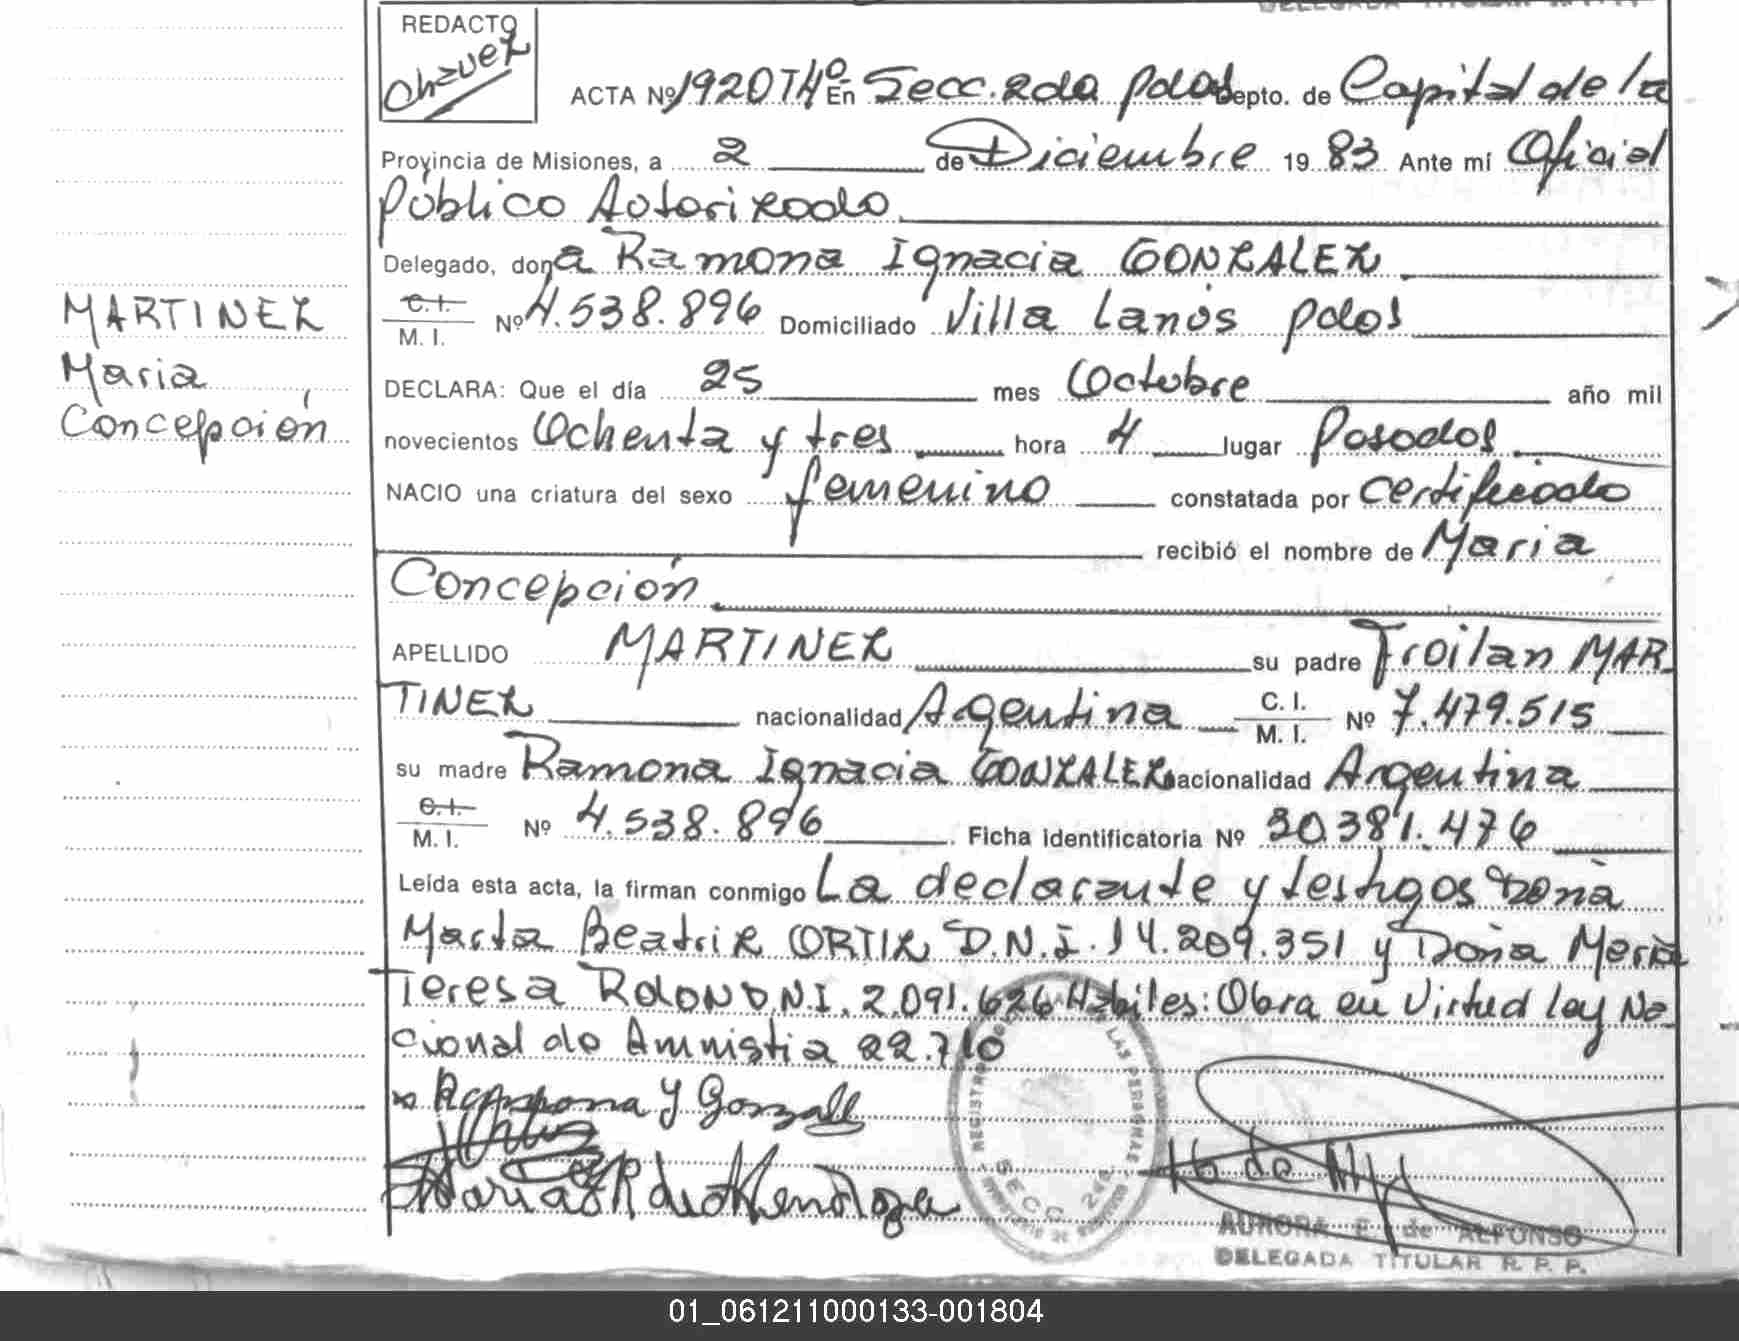 REDACTO
Chavez
ACTA Nº 1920 Tº 4º En Secc. 2da pdas Depto. de Capital de la
Provincia de Misiones, a 2 de Diciembre 19 83 Ante mí Oficial
Público Autorizado
Delegado, dona Ramona Ignacia GONZALEZ
C. I.
M. I. Nº 4.538.896 Domiciliado Villa Lanús pdas
MARTINEZ
Maria
Concepción
DECLARA: Que el día 25 mes Octubre año mil
novecientos Ochenta y tres hora 4 lugar Posadas
NACIO una criatura del sexo femenino constatada por certificado
recibió el nombre de Maria
Concepción
APELLIDO MARTINEZ su padre Troilan MAR-
TINEZ nacionalidad Agentina C. I.
M. I. Nº 7.479.515
su madre Ramona Ignacia GONZALEZ nacionalidad Argentina
C. I.
M. I. Nº 4.538.896 Ficha identificatoria Nº 30.381.476
Leída esta acta, la firman conmigo La declarante y testigos Doña
Marta Beatriz ORTIZ D.N.I. 14.209.351 y Doña Maria
Teresa ROLON D.N.I. 2.091.626 Habiles: Obra en Virtud ley Na
cional de Amnistia 22.710
Ramona Y Gonzalez
Maria T R de Mendoza
SECC. 2da
AURORA E. de ALFONSO
DELEGADA TITULAR R. P. P.
01_061211000133-001804